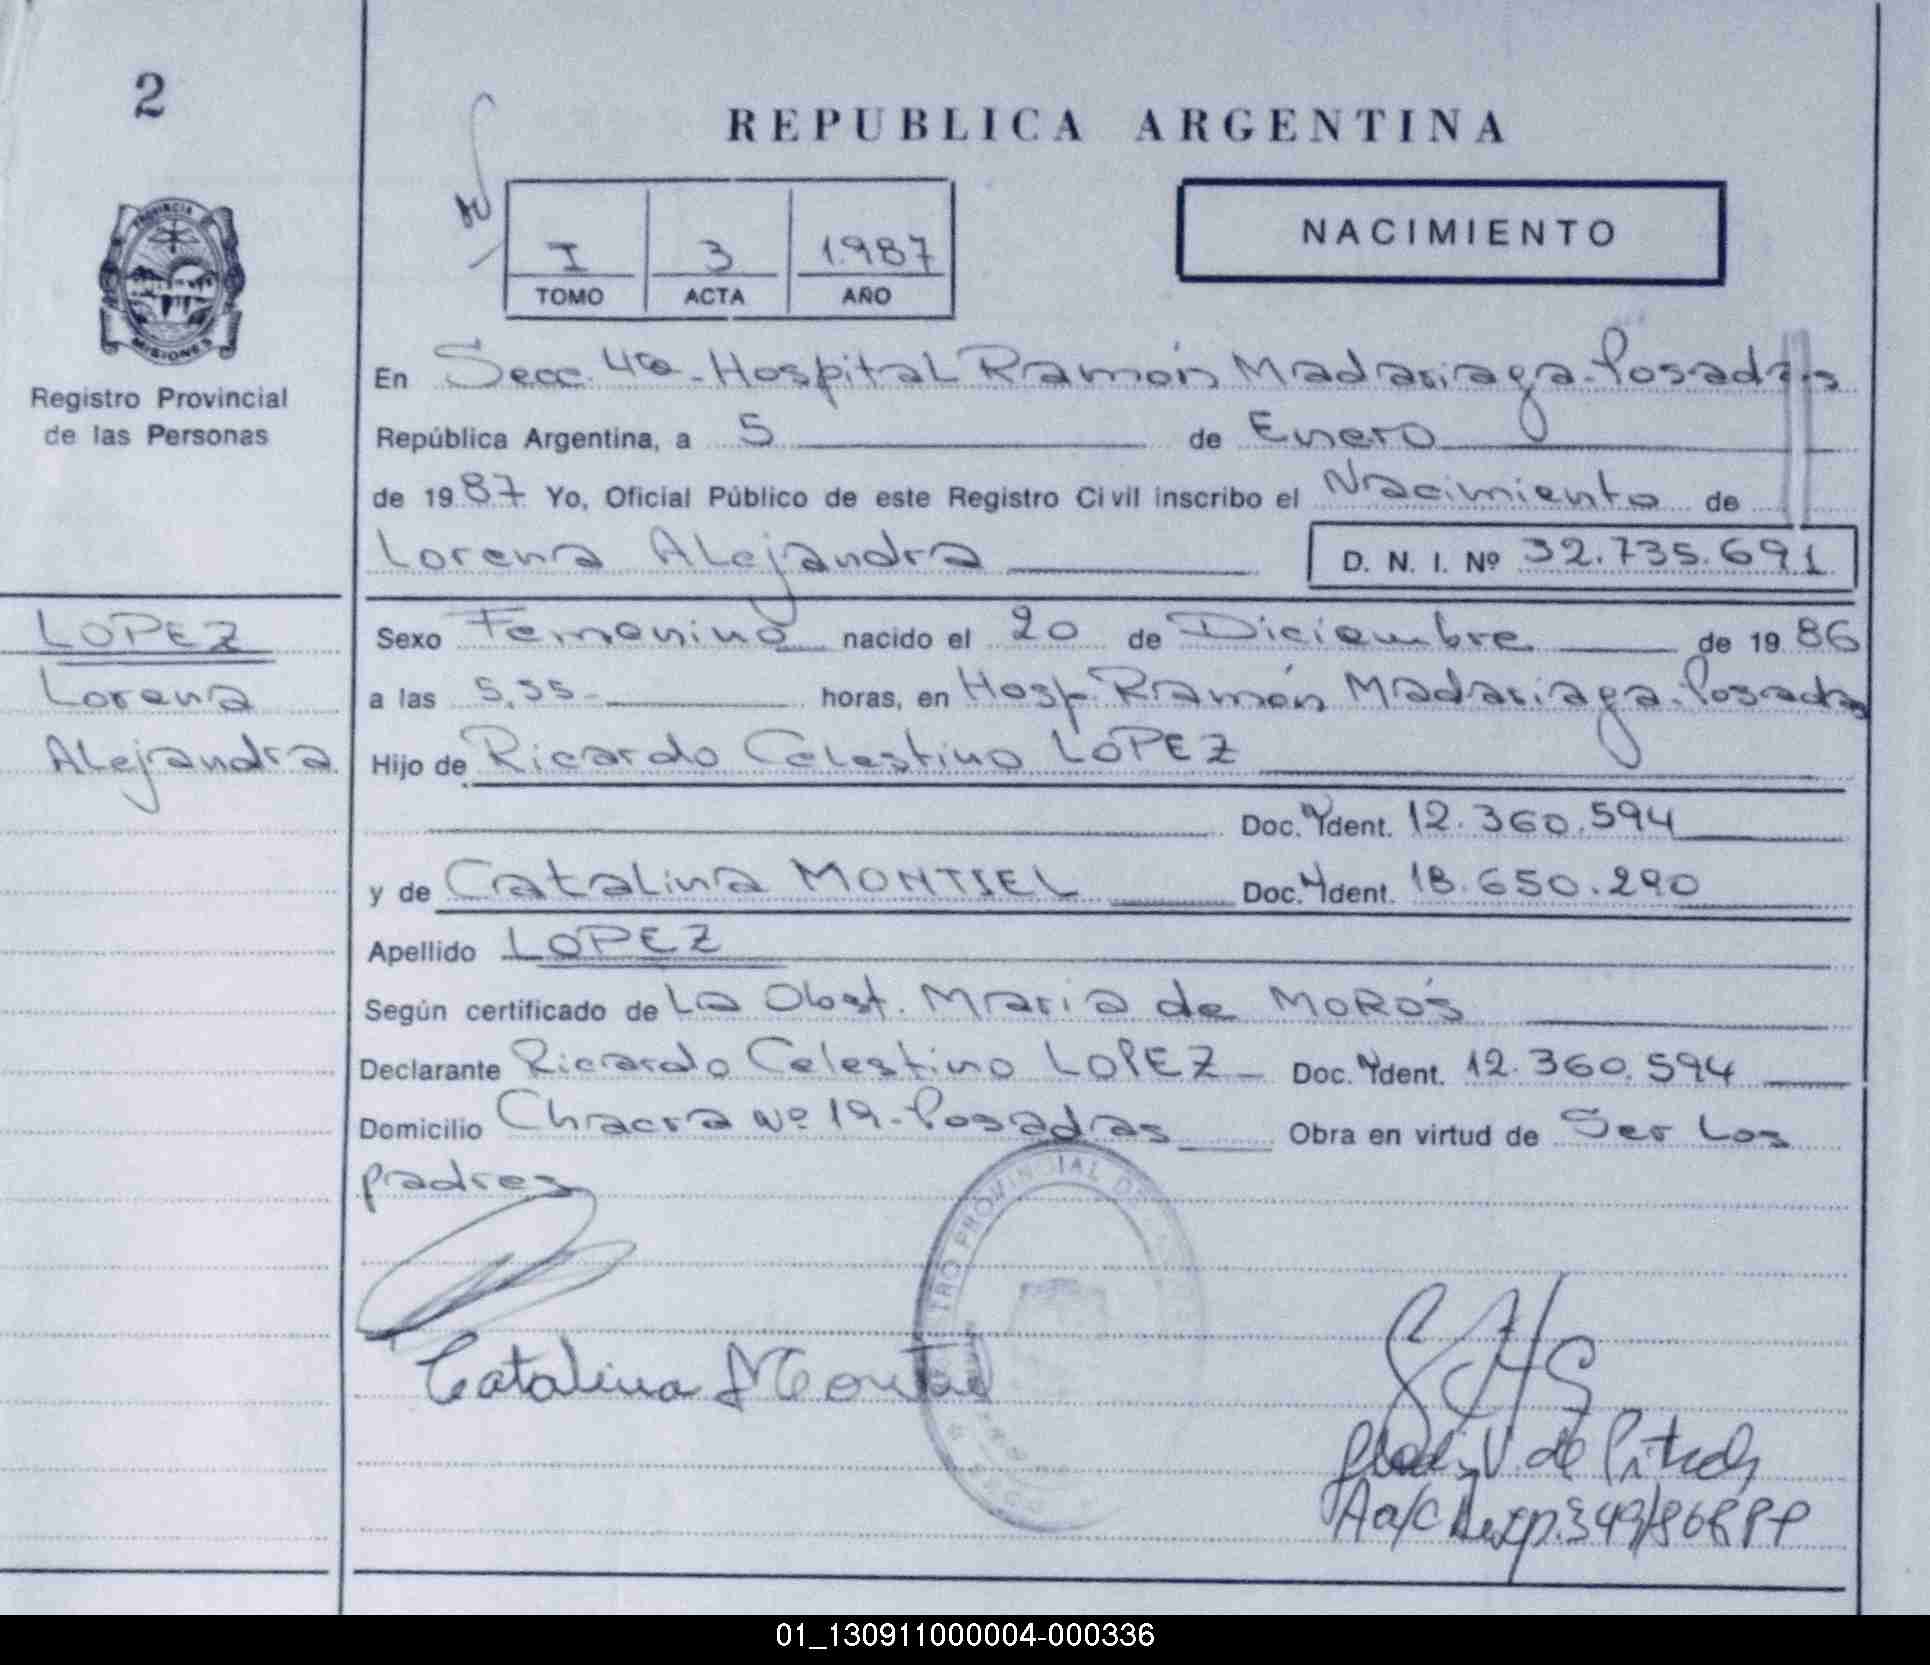 2
REPUBLICA ARGENTINA
PROVINCIA
MISIONES
Registro Provincial
de las Personas
I 3 1.987
TOMO ACTA AÑO
NACIMIENTO
En Secc. 4ta. Hospital Ramón Madariaga. Posadas
República Argentina, a 5 de Enero
de 1987 Yo, Oficial Público de este Registro Civil inscribo el Nacimiento de
Lorena Alejandra D. N. I. Nº 32.735.691
LOPEZ
Lorena
Alejandra
Sexo Femenino nacido el 20 de Diciembre de 1986
a las 5,55 horas, en Hosp. Ramón Madariaga. Posadas
Hijo de Ricardo Celestino LOPEZ
Doc. Ydent. 12.360.594
y de Catalina MONTIEL Doc. Ydent. 18.650.290
Apellido LOPEZ
Según certificado de La Obst. Maria de MOROS
Declarante Ricardo Celestino LOPEZ Doc. Ydent. 12.360.594
Domicilio Chacra Nº 19 - Posadas Obra en virtud de Ser Los
padres
Catalina Montiel
PROVINCIAL DE
V. de
A a/c 349/86 RPP
01_130911000004-000336